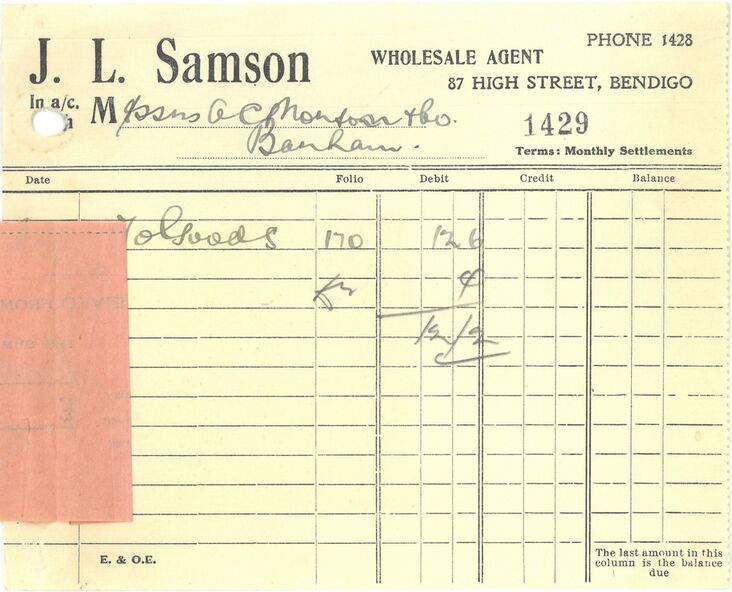 J. L. Samson
WHOLESALE AGENT
PHONE 1428
87 HIGH STREET, BENDIGO
In a/c.
Messrs A C Morton & Co.
Barham.
1429
Terms: Monthly Settlements
Date Folio Debit Credit Balance
To Goods 170 12 6
4
12/2
E. & O.E.
The last amount in this
column is the balance
due